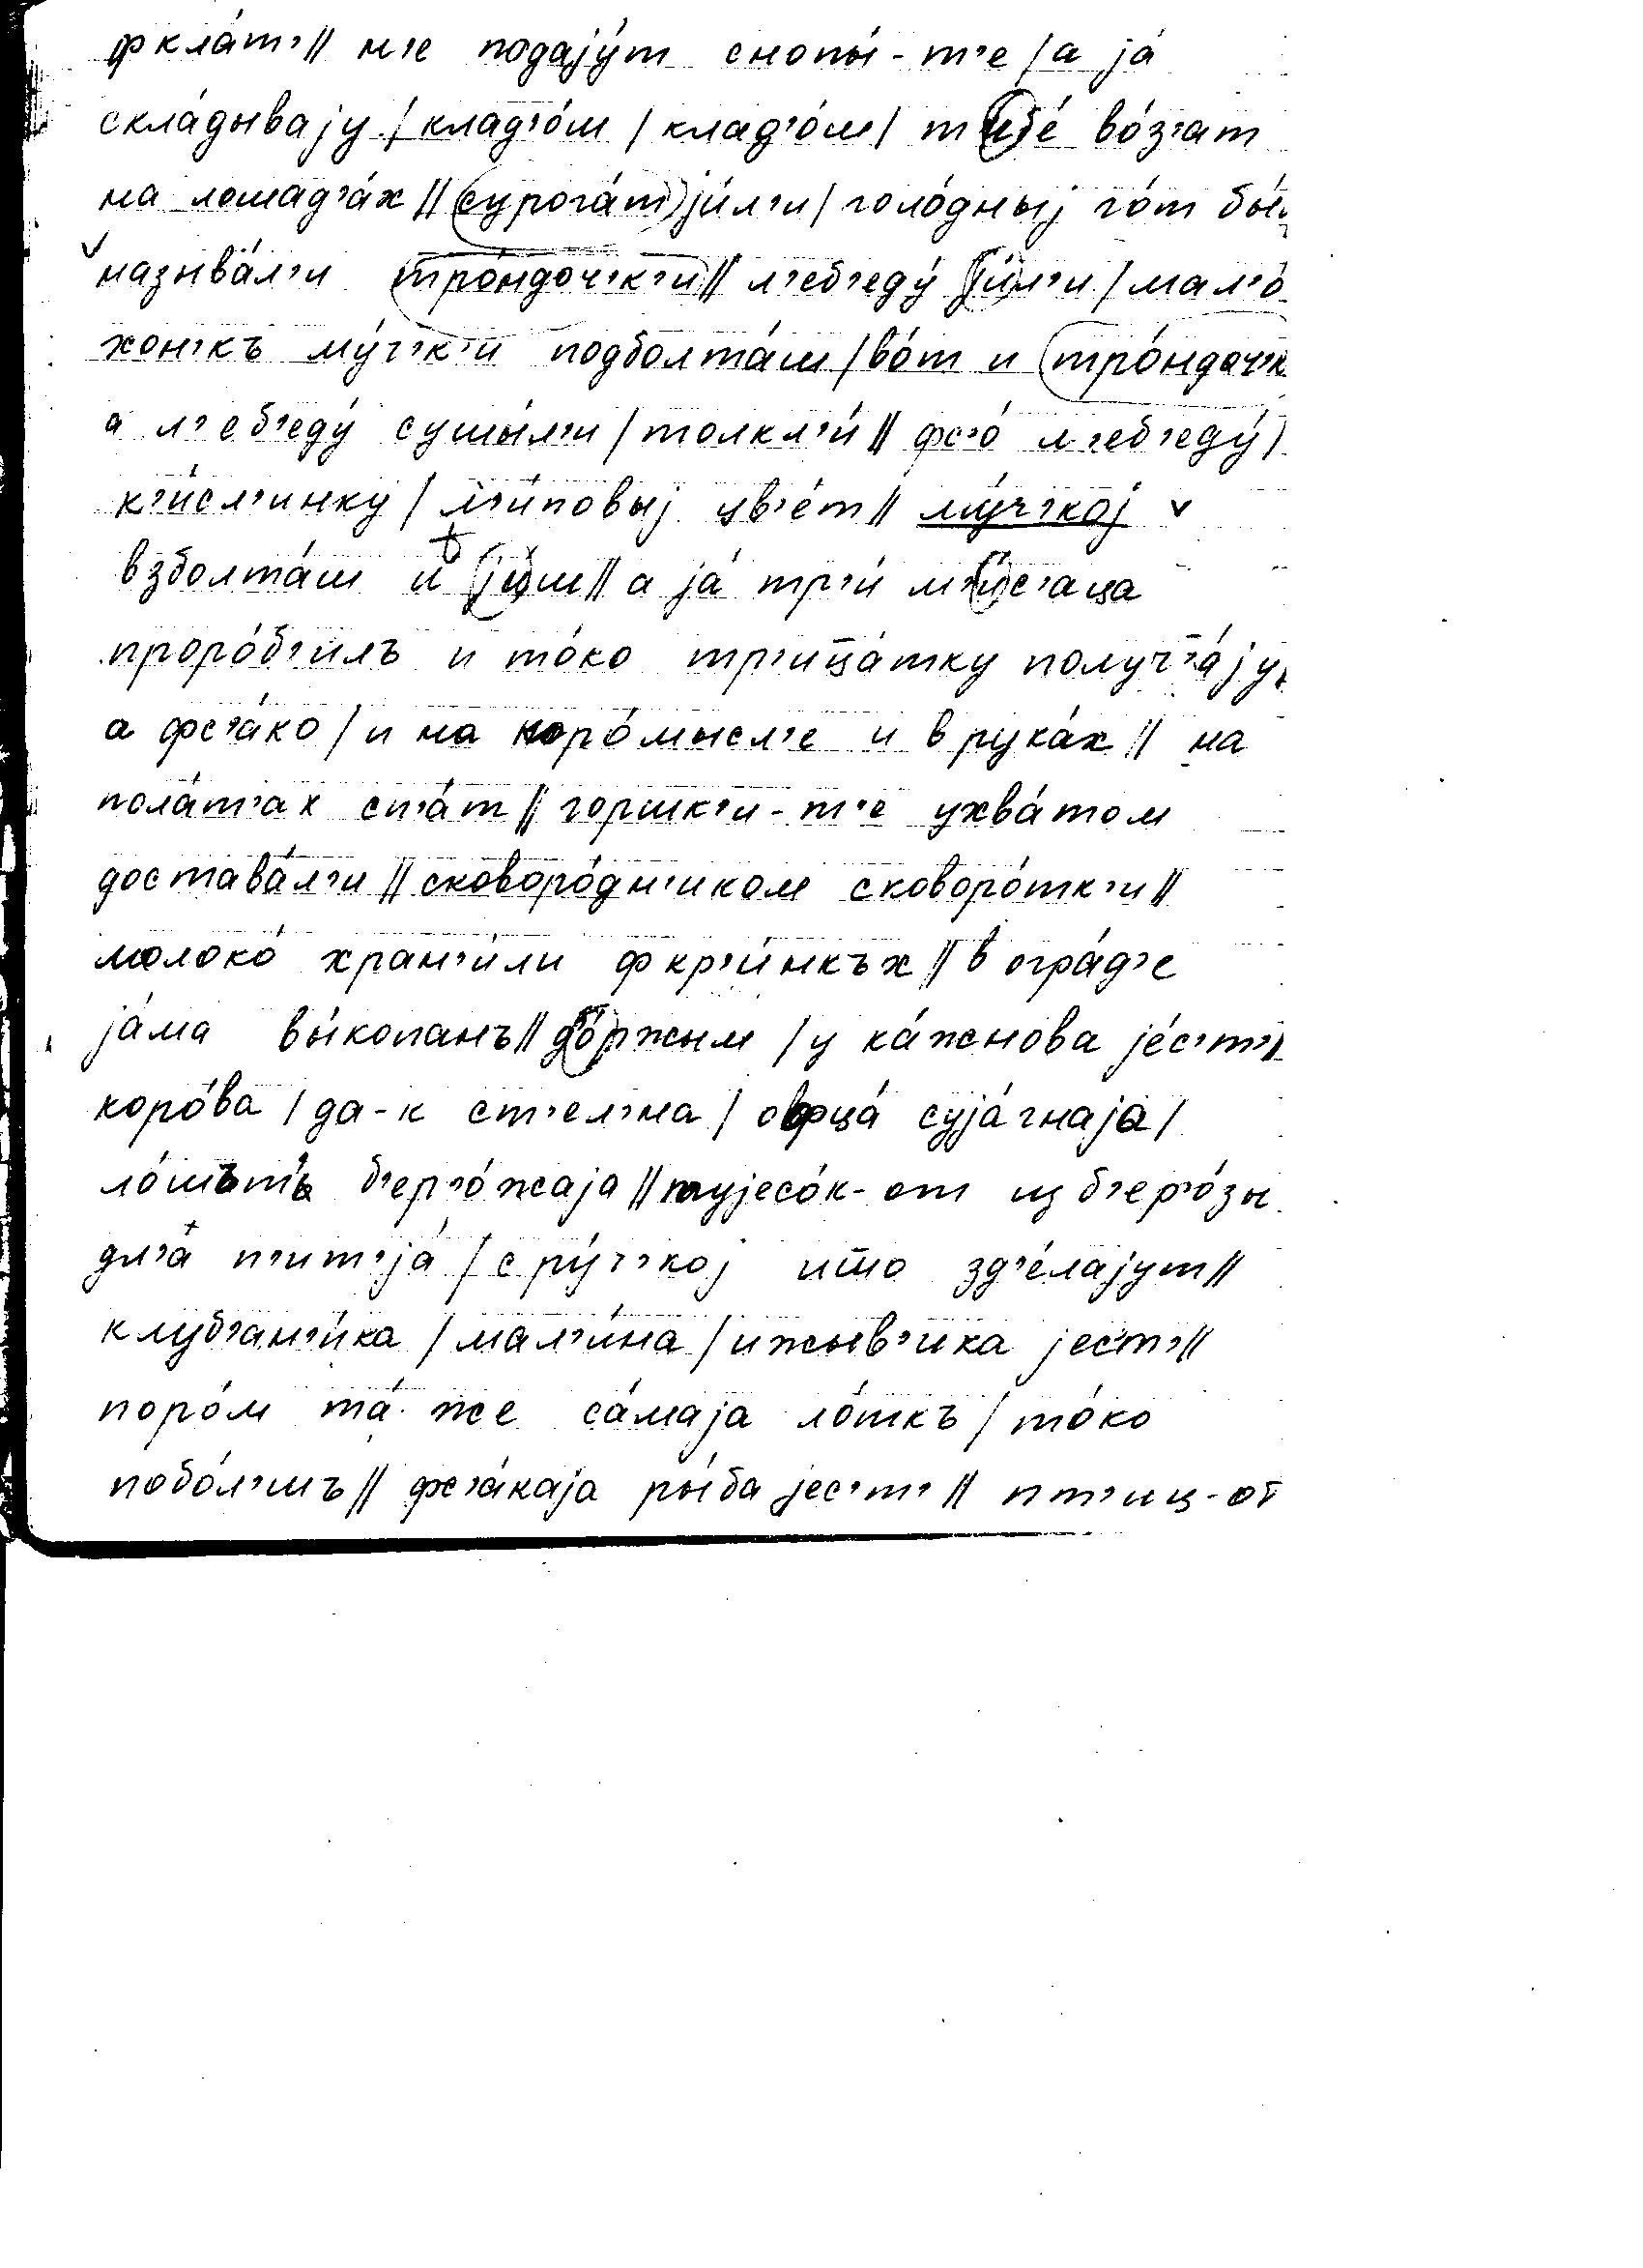 ф кла́т’// м’е подају́т снопы́-т’е /а ја́
скла́дывају / клад’о́м / клад’о́м / т’ибе́ во́з’ат
на лошад’а́х // сурога́т ји́л’и / голо́дныј го́т бы́л
называ́л’и тро́ндоч’к’и // л’еб’еду́ ји́л’и / мал’о́
хон’къ му́ч’к’и подболта́ш / во́т и тро́ндоч’к
а л’еб’еду́ сушы́л’и / толкл’и́ // фс’о́ л’еб’еду́ /
к’и́сл’инку / л’и́повыј цв’е́т // му́ч’кој
взболта́ш и јиш // а ја́ тр’и́ м’и́с’аца
проро́б’илъ и то́ко тр’ица́тку получ’а́ју,
а фс’а́ко / и на коро́мысл’е и в рука́х // на
пола́т’ах сп’а́т // горшк’и-т’е ухва́том
достава́л’и // сковоро́дн’иком сковоро́тк’и //
молоко́ хран’и́ли ф кр’и́нкъх // в огра́д’е
ја́ма вы́копанъ // до́ржым / у ка́жнова је́с’т’ //
коро́ва / да-к ст’ел’на / офца́ суја́гнаја /
ло́шът’ б’ер’о́жаја // тујесо́к-от из б’ер’о́зы
дл’а́ п’ит’ја́ / с ру́ч’кој што зд’е́лајут //
клуб’ан’и́ка / мал’и́на / ижыв’ика јест’ //
поро́м та́ же са́маја ло́ткъ / то́ко
побо́л’шъ // фс’а́каја ры́ба јес’т’ // пт’иц-от